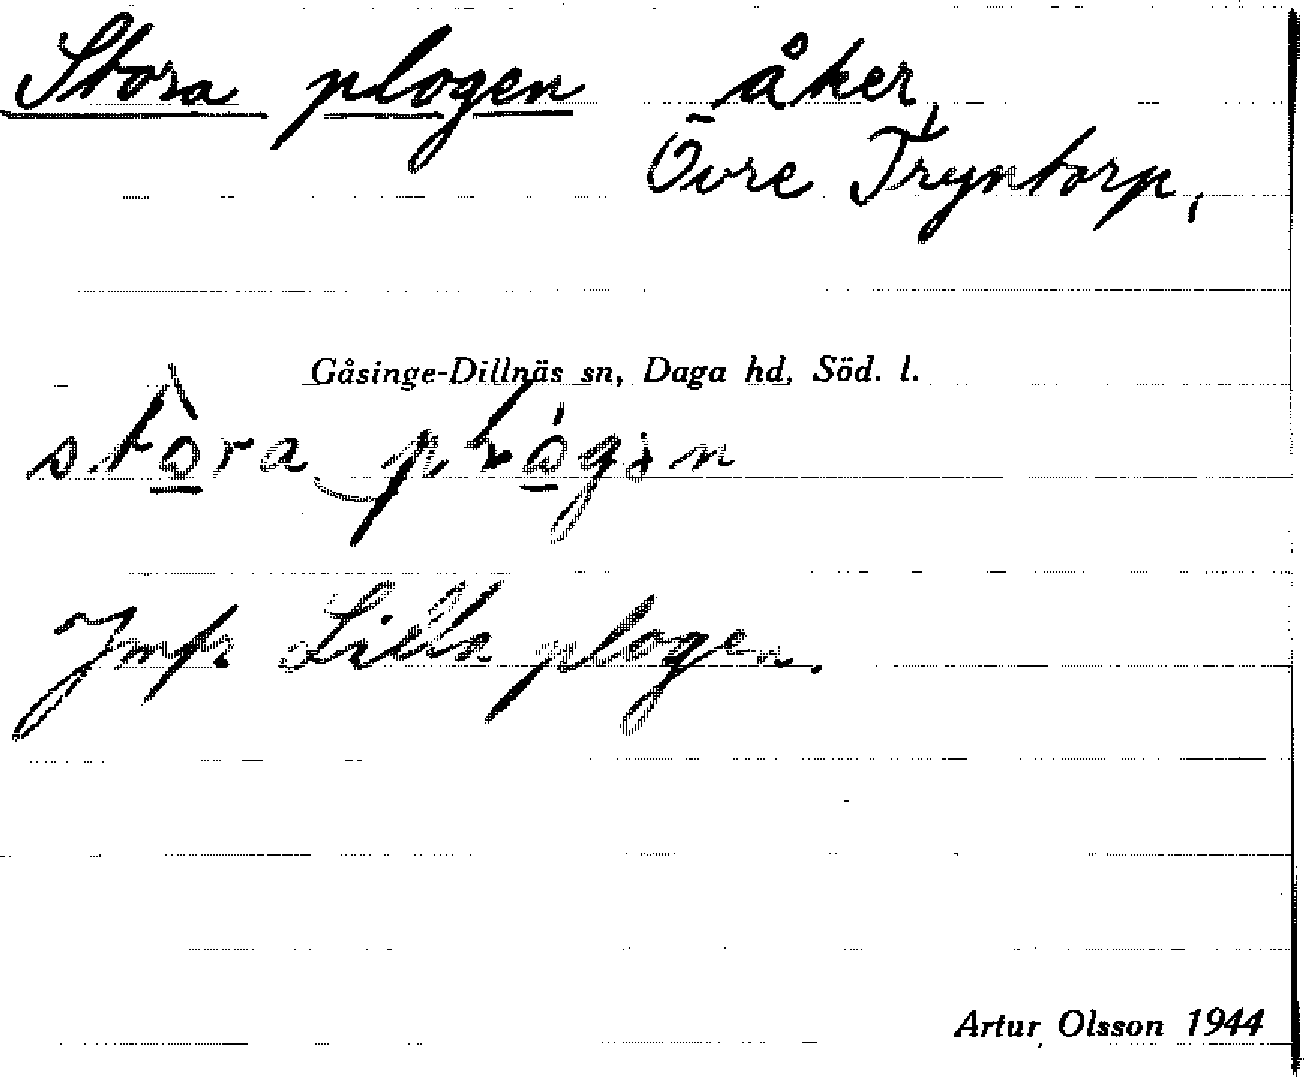 Stora plogen åker,
Övre Tryntorp,
Gåsinge-Dillnäs sn, Daga hd, Söd. l.
stora plogen
Jmfr Lilla plogen.
Artur Olsson 1944